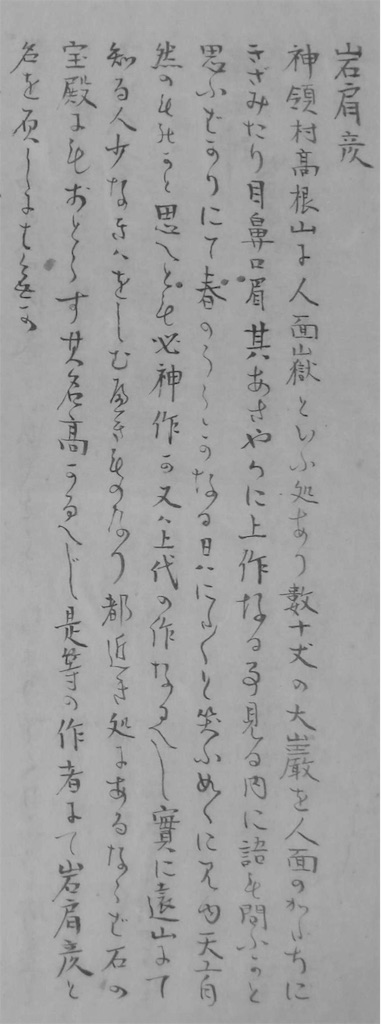 岩肩彦
神領村高根山に人面嶽といふ処あり數十丈の大巌を人面のかたちに
きざみたり目鼻口眉其あさやかに上作なる事見る内に語も聞ふかと
思ふばかりにて春のうらゝかなる日ハにこ〳〵と笑ふ如くに見ゆ天
然のものかと思へとも必神作か又ハ上代の作なるへし實に遠山にて
知る人少なきハをしむへきものなり都近き処にあるならバ石の
宝殿にもおとらす其名高かるへし是等の作者にて岩肩彦と
名を